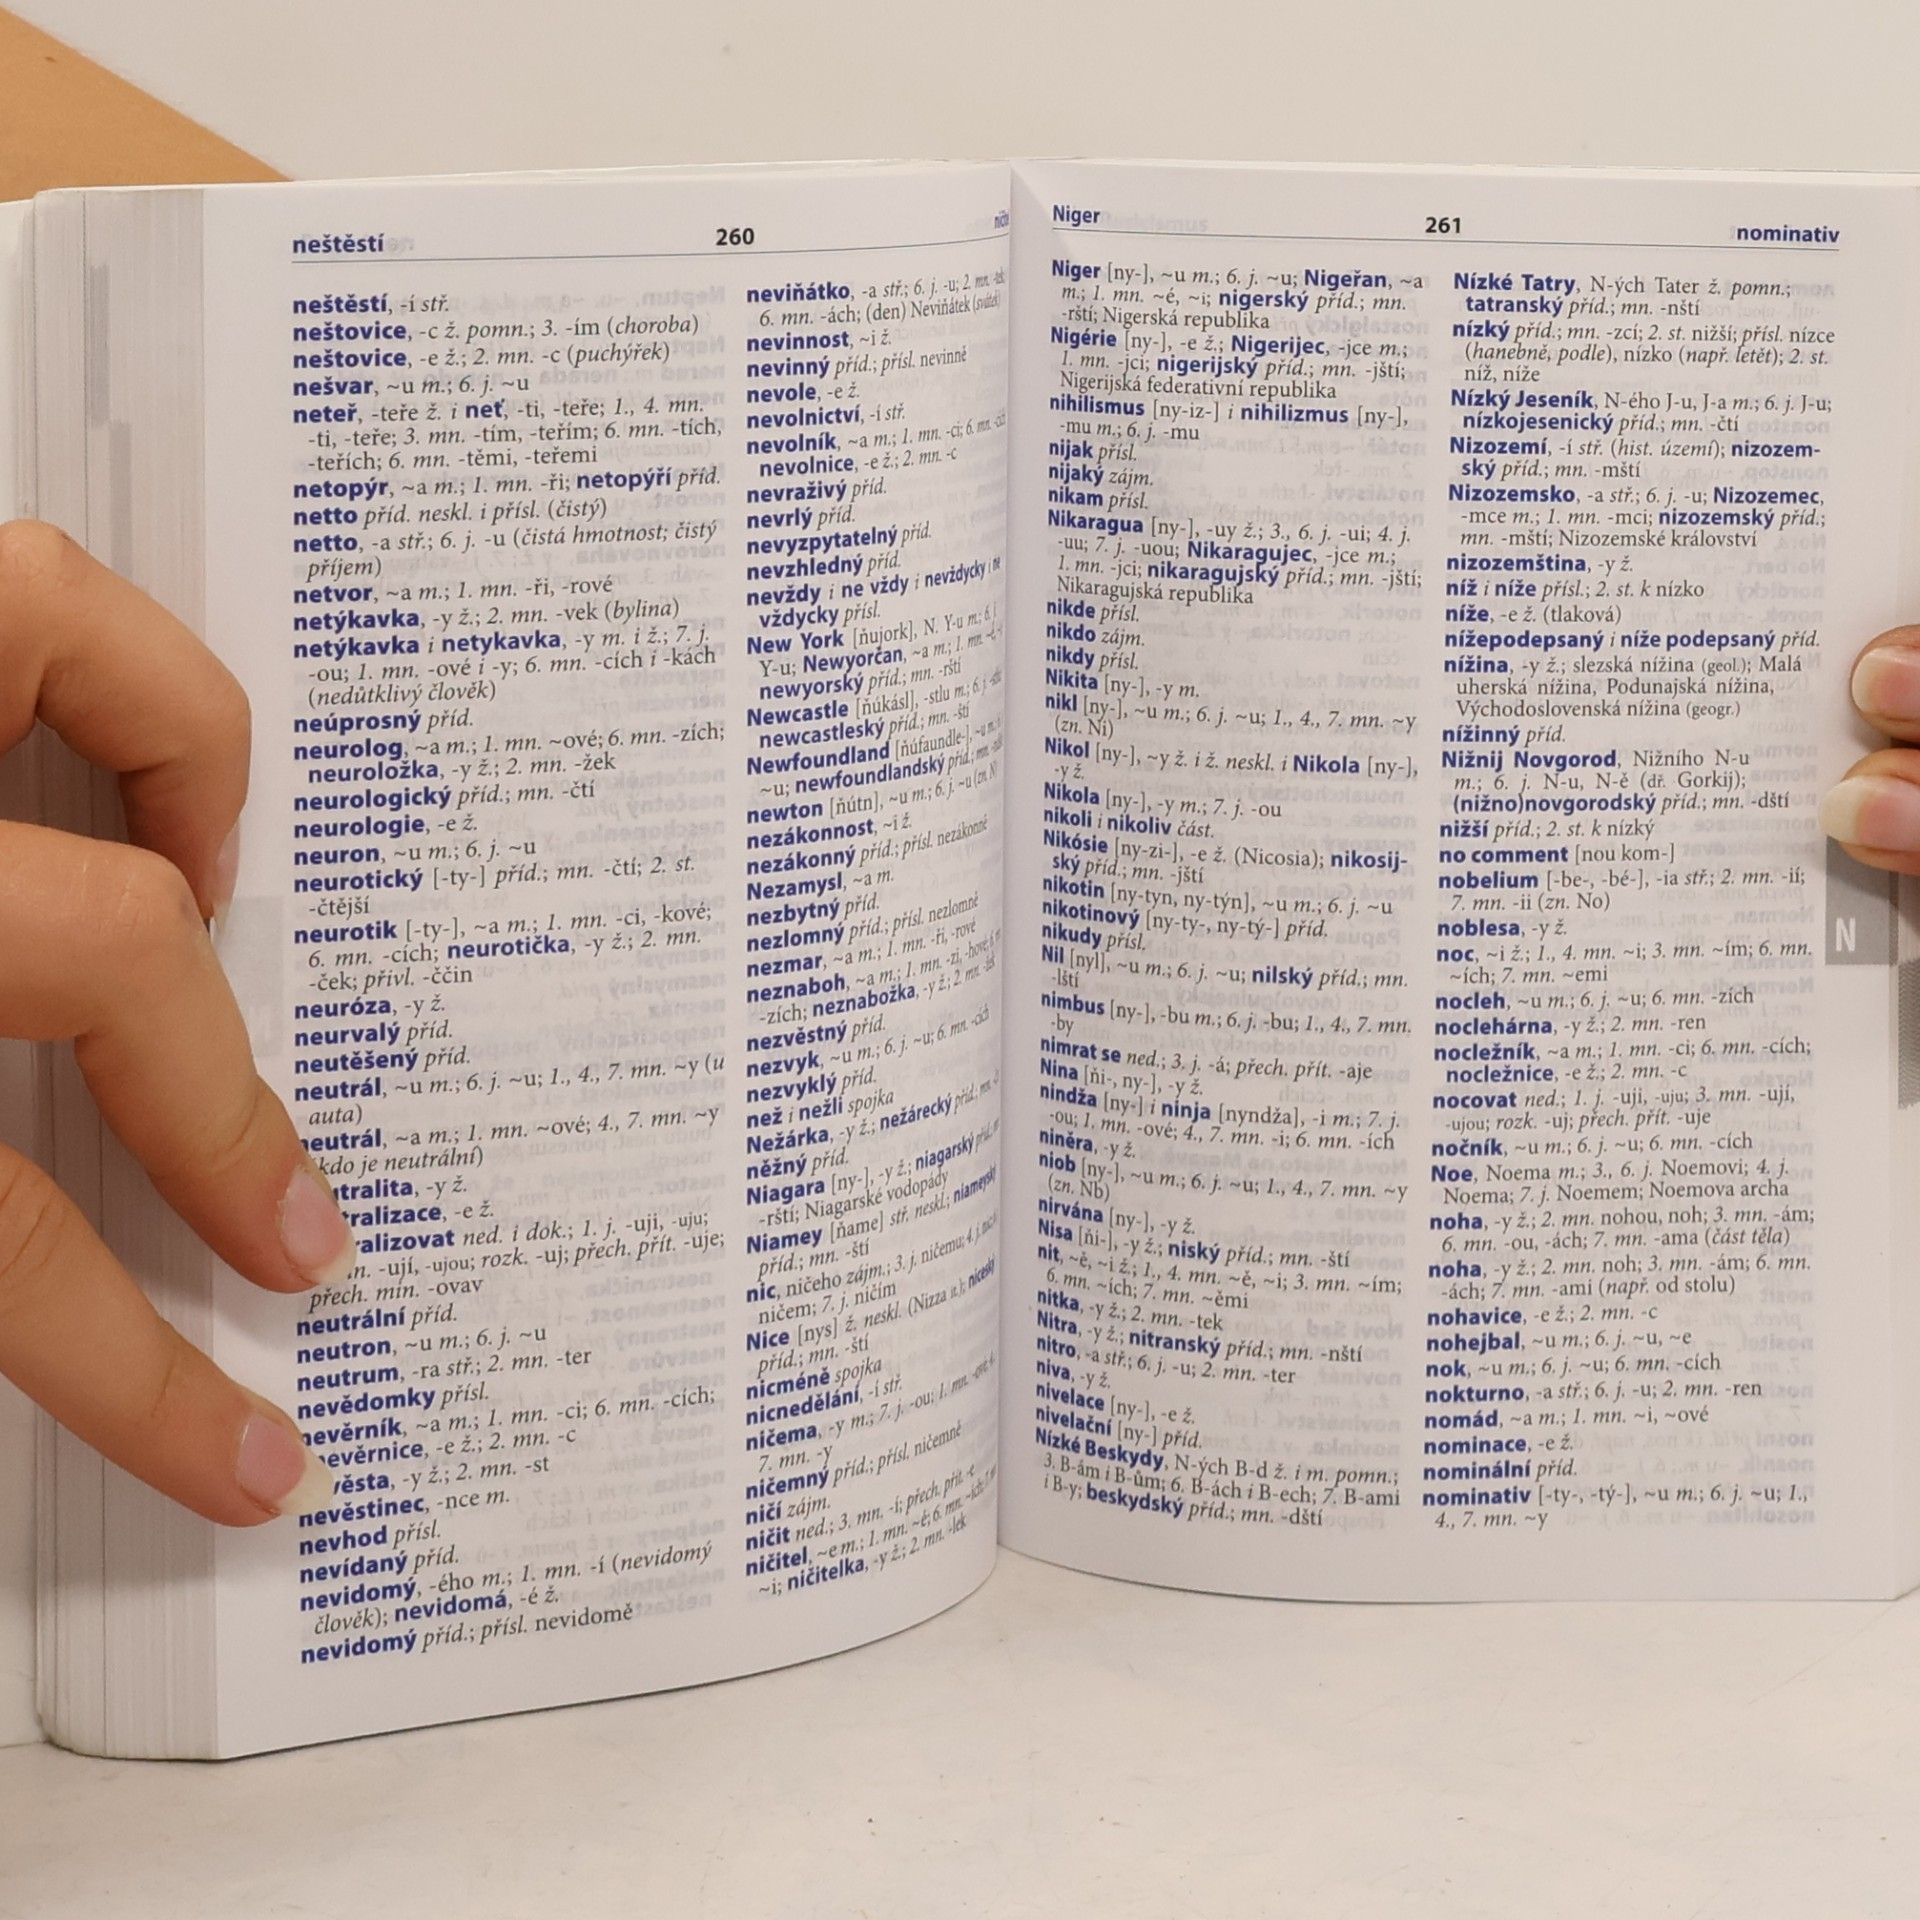 neštěstí
260
neštěstí, -í stř.
neštovice, -c ž. pomn.; 3. -ím (choroba)
neštovice, -e ž.; 2. mn. -c (puchýřek)
nešvar, ~u m.; 6. j. ~u
neteř, -teře ž. i neť, -ti, -teře; 1., 4. mn.
-ti, -teře; 3. mn. -tím, -teřím; 6. mn. -tích,
-teřích; 6. mn. -těmi, -teřemi
netopýr, ~a m.; 1. mn. -ři; netopýří příd.
netto příd. neskl. i přísl. (čistý)
netto, -a stř.; 6. j. -u (čistá hmotnost; čistý
příjem)
netvor, ~a m.; 1. mn. -ři, -rové
netýkavka, -y ž.; 2. mn. -vek (bylina)
netýkavka i netykavka, -y m. i ž.; 7. j.
-ou; 1. mn. -ové i -y; 6. mn. -cích i -kách
(nedůtklivý člověk)
neúprosný příd.
neurolog, ~a m.; 1. mn. ~ové; 6. mn. -zích;
neuroložka, -y ž.; 2. mn. -žek
neurologický příd.; mn. -čtí
neurologie, -e ž.
neuron, ~u m.; 6. j. ~u
neurotický [-ty-] příd.; mn. -čtí; 2. st.
-čtější
neurotik [-ty-], ~a m.; 1. mn. -ci, -kové;
6. mn. -cích; neurotička, -y ž.; 2. mn.
-ček; přivl. -ččin
neuróza, -y ž.
neurvalý příd.
neutěšený příd.
neutrál, ~u m.; 6. j. ~u; 1., 4., 7. mn. ~y (u
auta)
neutrál, ~a m.; 1. mn. ~ové; 4., 7. mn. ~y
kdo je neutrální)
tralita, -y ž.
tralizace, -e ž.
ralizovat ned. i dok.; 1. j. -uji, -uju;
n. -ují, -ujou; rozk. -uj; přech. přít. -uje;
přech. min. -ovav
neutrální příd.
neutron, ~u m.; 6. j. ~u
neutrum, -ra stř.; 2. mn. -ter
nevědomky přísl.
nevěrník, ~a m.; 1. mn. -ci; 6. mn. -cích;
nevěrnice, -e ž.; 2. mn. -c
věsta, -y ž.; 2. mn. -st
nevěstinec, -nce m.
nevhod přísl.
nevídaný příd.
nevidomý, -ého m.; 1. mn. -í (nevidomý
člověk); nevidomá, -é ž.
nevidomý příd.; přísl. nevidomě
neviňátko, -a stř.; 6. j. -u; 2. mn. -tek
6. mn. -ách; (den) Neviňátek (svátek)
nevinnost, ~i ž.
nevinný příd.; přísl. nevinně
nevole, -e ž.
nevolnictví, -í stř.
nevolník, ~a m.; 1. mn. -ci; 6. mn. -cích
nevolnice, -e ž.; 2. mn. -c
nevraživý příd.
nevrlý příd.
nevyzpytatelný příd.
nevzhledný příd.
nevždy i ne vždy i nevždycky i ne
vždycky přísl.
New York [ňujork], N. Y-u m.; 6. j.
Y-u; Newyorčan, ~a m.; 1. mn. ~é,
newyorský příd.; mn. -rští
Newcastle [ňúkásl], -stlu m.; 6. j. -stlu
newcastleský příd.; mn. -ští
Newfoundland [ňúfaundle-], ~u m.;
~u; newfoundlandský příd.; mn.
newton [ňútn], ~u m.; 6. j. ~u (zn. N)
nezákonnost, ~i ž.
nezákonný příd.; přísl. nezákonně
Nezamysl, ~a m.
nezbytný příd.
nezlomný příd.; přísl. nezlomně
nezmar, ~a m.; 1. mn. -ři, -rové
neznaboh, ~a m.; 1. mn. -zi, -hové; 6. mn.
-zích; neznabožka, -y ž.; 2. mn. -žek
nezvěstný příd.
nezvyk, ~u m.; 6. j. ~u; 6. mn. -cích
nezvyklý příd.
než i nežli spojka
Nežárka, -y ž.; nežárecký příd.; mn.
něžný příd.
Niagara [ny-], -y ž.; niagarský příd.; mn.
-rští; Niagarské vodopády
Niamey [ňame] stř. neskl.; niameyský
příd.; mn. -ští
nic, ničeho zájm.; 3. j. ničemu; 4. j. nic;
ničem; 7. j. ničím
Nice [nys] ž. neskl. (Nizza it.); niceský
příd.; mn. -ští
nicméně spojka
nicnedělání, -í stř.
ničema, -y m.; 7. j. -ou; 1. mn. -ové;
7. mn. -y
ničemný příd.; přísl. ničemně
ničí zájm.
ničit ned.; 3. mn. -í; přech. přít. -e
ničitel, ~e m.; 1. mn. ~é; 6. mn. ~ích;
~i; ničitelka, -y ž.; 2. mn. -lek
Niger
261
nominativ
Niger [ny-], ~u m.; 6. j. ~u; Nigeřan, ~a
m.; 1. mn. ~é, ~i; nigerský příd.; mn.
-rští; Nigerská republika
Nigérie [ny-], -e ž.; Nigerijec, -jce m.;
1. mn. -jci; nigerijský příd.; mn. -jští;
Nigerijská federativní republika
nihilismus [ny-iz-] i nihilizmus [ny-],
-mu m.; 6. j. -mu
nijak přísl.
nijaký zájm.
nikam přísl.
Nikaragua [ny-], -uy ž.; 3., 6. j. -ui; 4. j.
-uu; 7. j. -uou; Nikaragujec, -jce m.;
1. mn. -jci; nikaragujský příd.; mn. -jští;
Nikaragujská republika
nikde přísl.
nikdo zájm.
nikdy přísl.
Nikita [ny-], -y m.
nikl [ny-], ~u m.; 6. j. ~u; 1., 4., 7. mn. ~y
(zn. Ni)
Nikol [ny-], ~y ž. i ž. neskl. i Nikola [ny-],
-y ž.
Nikola [ny-], -y m.; 7. j. -ou
nikoli i nikoliv část.
Nikósie [ny-zi-], -e ž. (Nicosia); nikosij-
ský příd.; mn. -jští
nikotin [ny-tyn, ny-týn], ~u m.; 6. j. ~u
nikotinový [ny-ty-, ny-tý-] příd.
nikudy přísl.
Nil [nyl], ~u m.; 6. j. ~u; nilský příd.; mn.
-lští
nimbus [ny-], -bu m.; 6. j. -bu; 1., 4., 7. mn.
-by
nimrat se ned.; 3. j. -á; přech. přít. -aje
Nina [ňi-, ny-], -y ž.
nindža [ny-] i ninja [nyndža], -i m.; 7. j.
-ou; 1. mn. -ové; 4., 7. mn. -i; 6. mn. -ích
niněra, -y ž.
niob [ny-], ~u m.; 6. j. ~u; 1., 4., 7. mn. ~y
(zn. Nb)
nirvána [ny-], -y ž.
Nisa [ňi-], -y ž.; niský příd.; mn. -ští
nit, ~ě, ~i ž.; 1., 4. mn. ~ě, ~i; 3. mn. ~ím;
6. mn. ~ích; 7. mn. ~ěmi
nitka, -y ž.; 2. mn. -tek
Nitra, -y ž.; nitranský příd.; mn. -nští
nitro, -a stř.; 6. j. -u; 2. mn. -ter
niva, -y ž.
nivelace [ny-], -e ž.
nivelační [ny-] příd.
Nízké Beskydy, N-ých B-d ž. i m. pomn.;
3. B-ám i B-ům; 6. B-ách i B-ech; 7. B-ami
i B-y; beskydský příd.; mn. -dští
Nízké Tatry, N-ých Tater ž. pomn.;
tatranský příd.; mn. -nští
nízký příd.; mn. -zcí; 2. st. nižší; přísl. nízce
(hanebně, podle), nízko (např. letět); 2. st.
níž, níže
Nízký Jeseník, N-ého J-u, J-a m.; 6. j. J-u;
nízkojesenický příd.; mn. -čtí
Nizozemí, -í stř. (hist. území); nizozem-
ský příd.; mn. -mští
Nizozemsko, -a stř.; 6. j. -u; Nizozemec,
-mce m.; 1. mn. -mci; nizozemský příd.;
mn. -mští; Nizozemské království
nizozemština, -y ž.
níž i níže přísl.; 2. st. k nízko
níže, -e ž. (tlaková)
nížepodepsaný i níže podepsaný příd.
nížina, -y ž.; slezská nížina (geol.); Malá
uherská nížina, Podunajská nížina,
Východoslovenská nížina (geogr.)
nížinný příd.
Nižnij Novgorod, Nižního N-u
m.; 6. j. N-u, N-ě (dř. Gorkij);
(nižno)novgorodský příd.; mn. -dští
nižší příd.; 2. st. k nízký
no comment [nou kom-]
nobelium [-be-, -bé-], -ia stř.; 2. mn. -ií;
7. mn. -ii (zn. No)
noblesa, -y ž.
noc, ~i ž.; 1., 4. mn. ~i; 3. mn. ~ím; 6. mn.
~ích; 7. mn. ~emi
nocleh, ~u m.; 6. j. ~u; 6. mn. -zích
noclehárna, -y ž.; 2. mn. -ren
nocležník, ~a m.; 1. mn. -ci; 6. mn. -cích;
nocležnice, -e ž.; 2. mn. -c
nocovat ned.; 1. j. -uji, -uju; 3. mn. -ují,
-ujou; rozk. -uj; přech. přít. -uje
nočník, ~u m.; 6. j. ~u; 6. mn. -cích
Noe, Noema m.; 3., 6. j. Noemovi; 4. j.
Noema; 7. j. Noemem; Noemova archa
noha, -y ž.; 2. mn. nohou, noh; 3. mn. -ám;
6. mn. -ou, -ách; 7. mn. -ama (část těla)
noha, -y ž.; 2. mn. noh; 3. mn. -ám; 6. mn.
-ách; 7. mn. -ami (např. od stolu)
nohavice, -e ž.; 2. mn. -c
nohejbal, ~u m.; 6. j. ~u, ~e
nok, ~u m.; 6. j. ~u; 6. mn. -cích
nokturno, -a stř.; 6. j. -u; 2. mn. -ren
nomád, ~a m.; 1. mn. ~i, ~ové
nominace, -e ž.
nominální příd.
nominativ [-ty-, -tý-], ~u m.; 6. j. ~u; 1.,
4., 7. mn. ~y
N